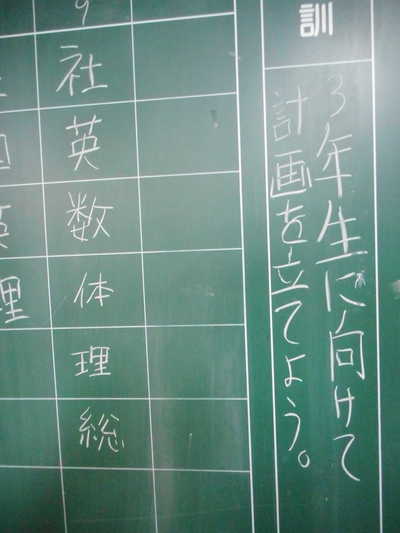 訓
3年生に向けて
計画を立てよう。
9
社
英
数
体
理
総
国
英
理